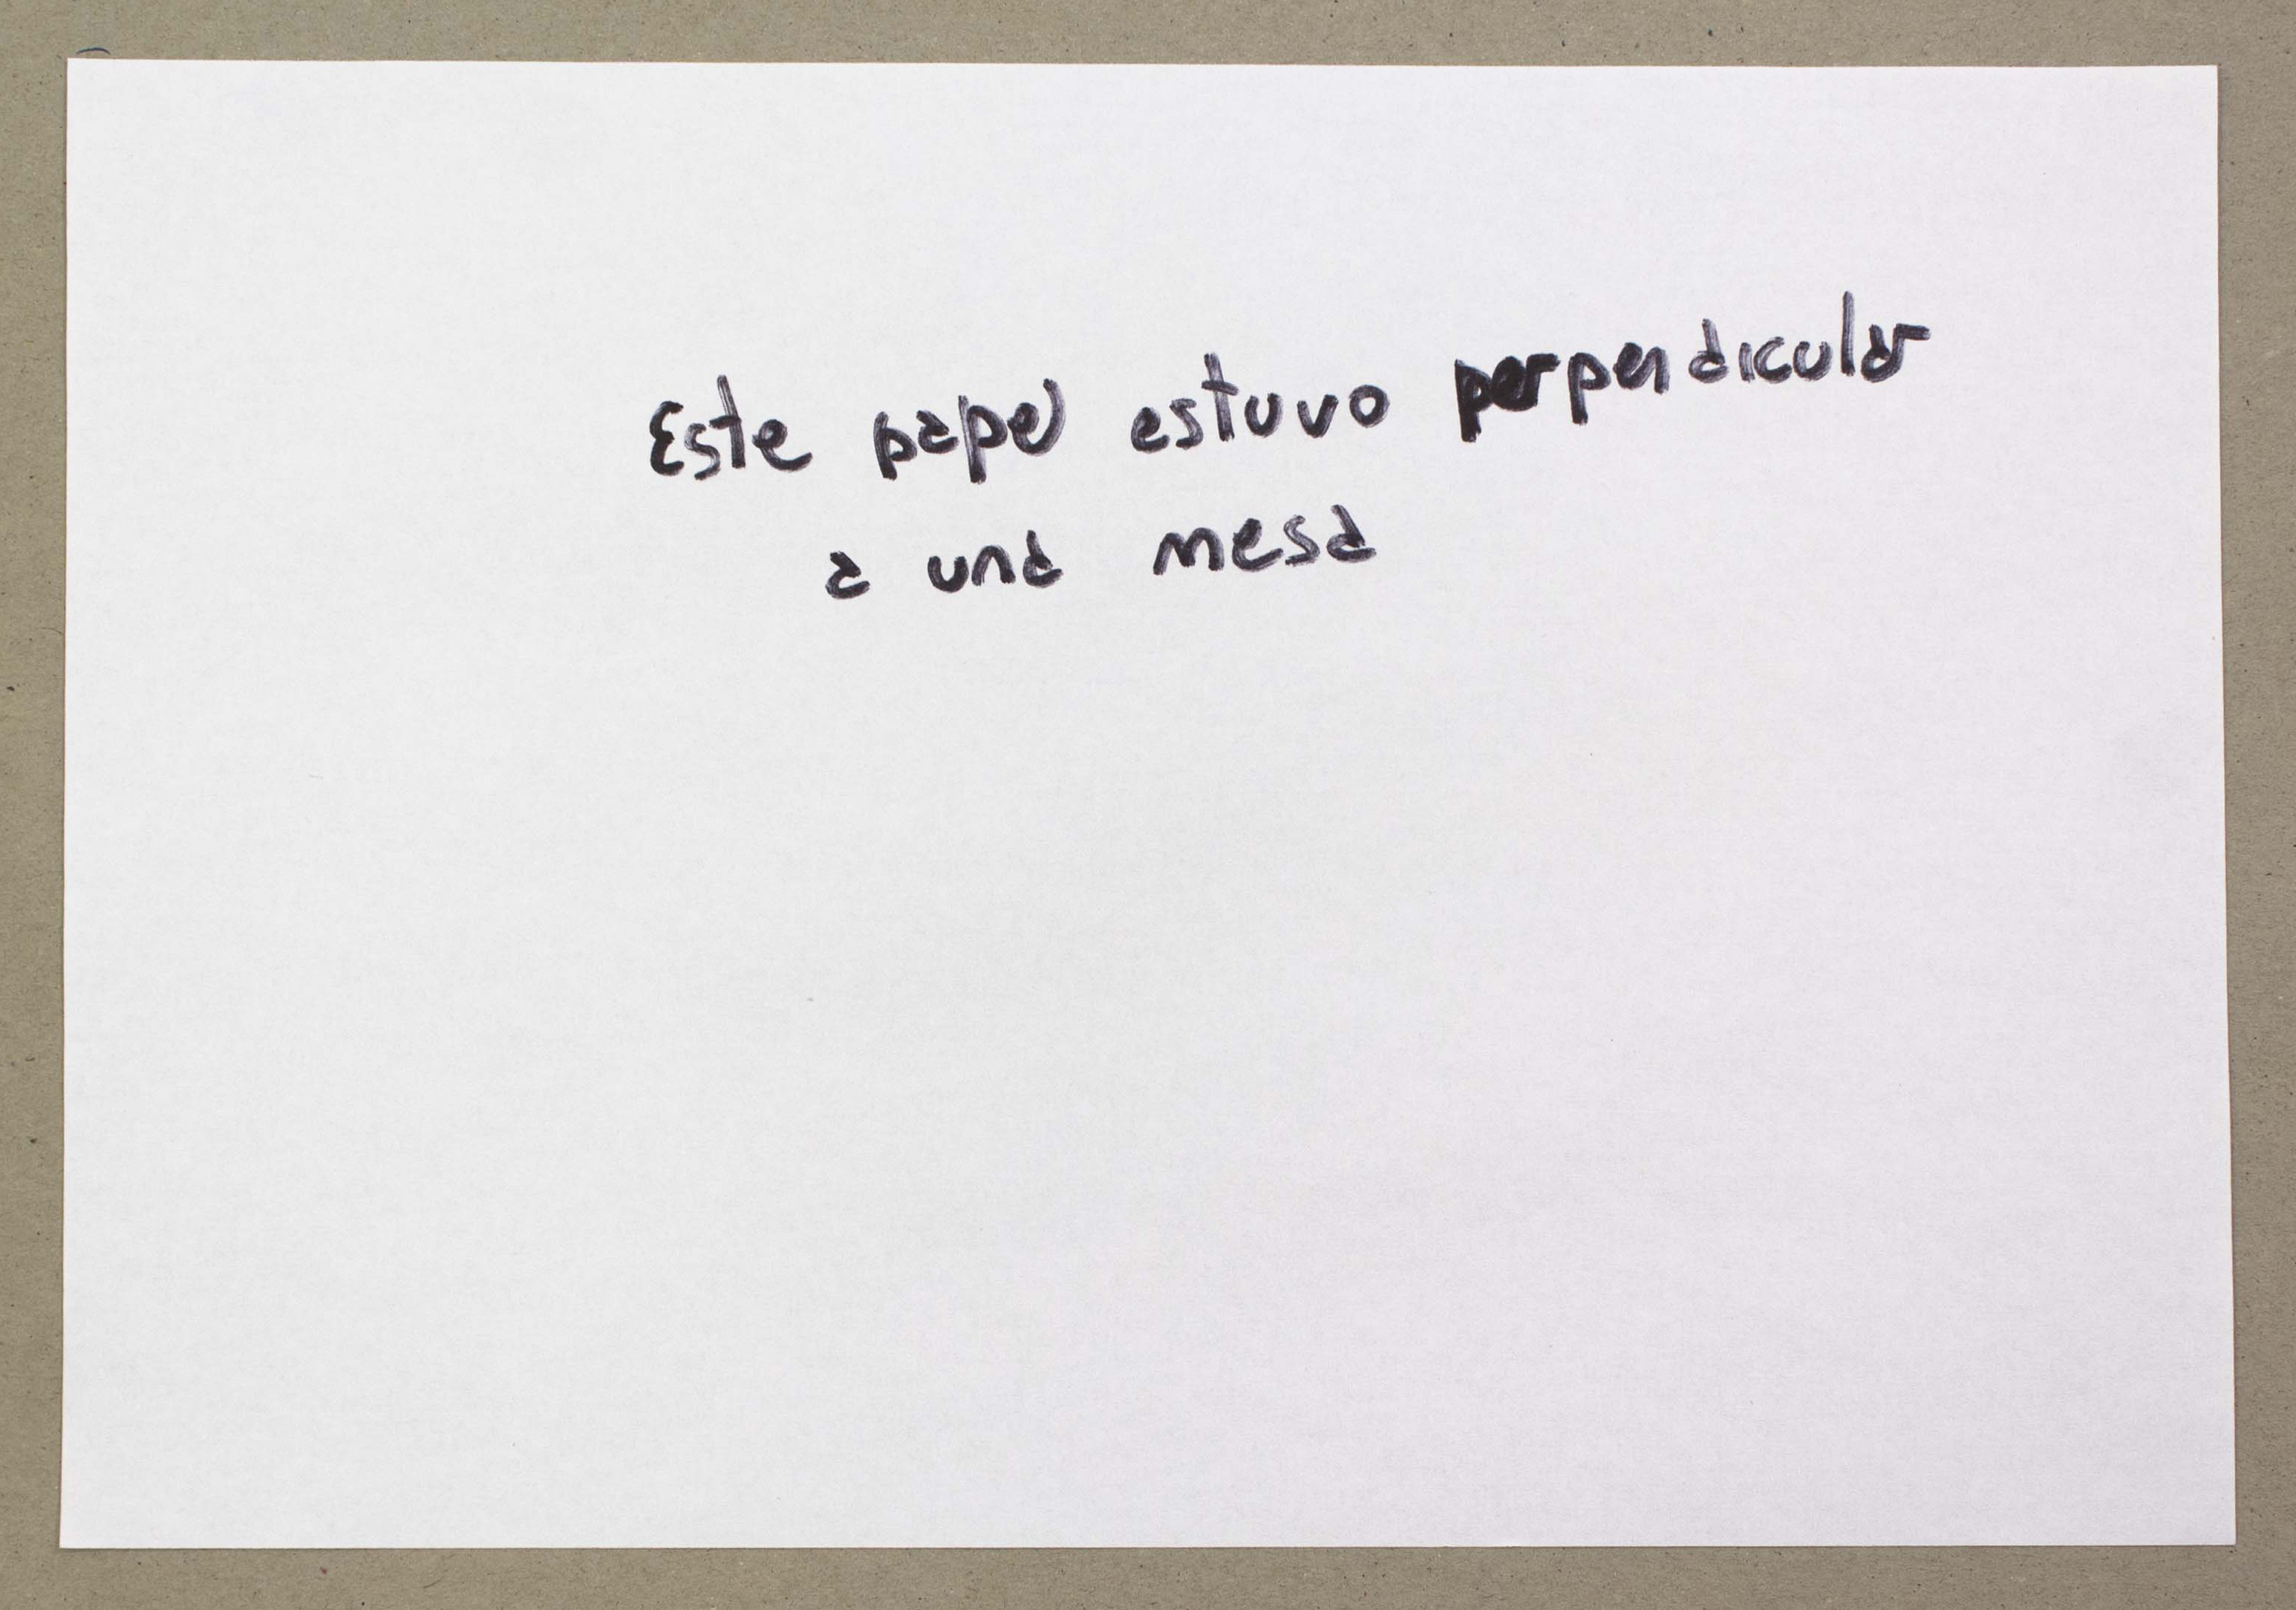 Este papel estuvo perpendicular
a una mesa